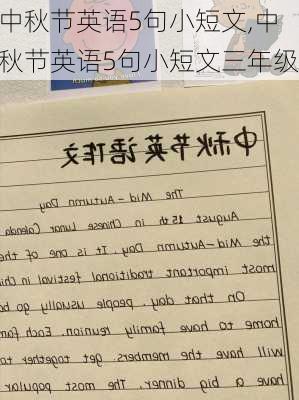 中秋节英语5句小短文,中
秋节英语5句小短文三年级
中秋节英语作文
The Mid-Autumn Day
August 15th in Chinese Lunar Calenda
the Mid-Autumn Day. It is one of the
most important traditional festival in Chi
On that day, people usually go ba
home to have family reunion. Each fam
will have the members. get together to
have a big dinner. The most popular